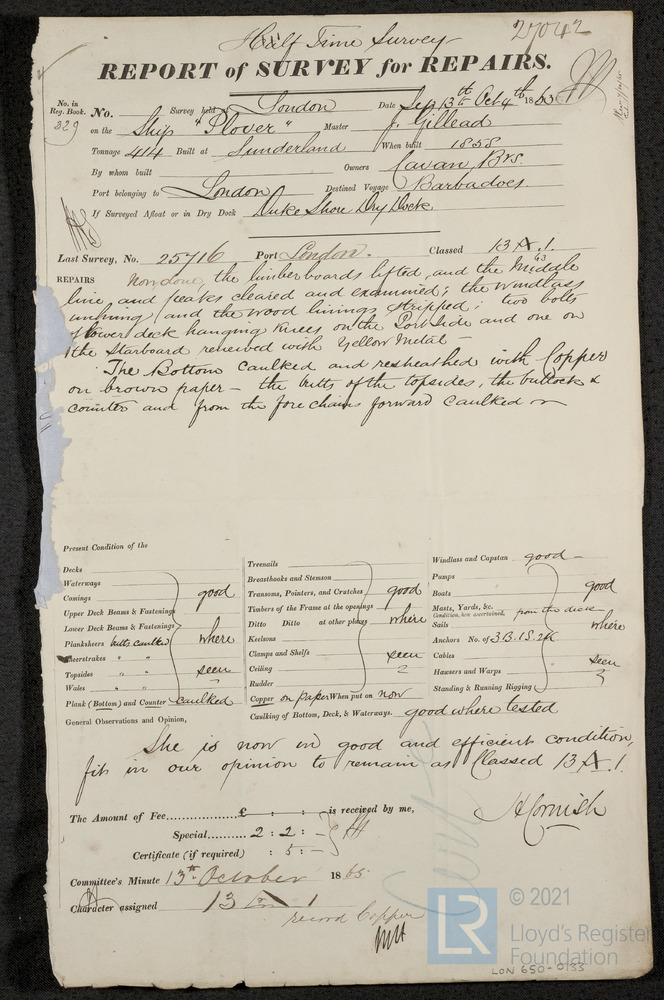 Half Time Survey
27042
REPORT of SURVEY for REPAIRS.
No. in Reg. Book. 329
No. Survey held at London Date Sep 13th Oct 4th 1865
on the Ship "Plover" Master J. Gillead
Tonnage 414 Built at Sunderland When built 1858
By whom built Owners Cavan Brs.
Port belonging to London Destined Voyage Barbadoes
If Surveyed Afloat or in Dry Dock Duke Shore Dry Dock
Last Survey, No. 25716 Port London. Classed 13 A.1.
63
REPAIRS Now done, the limber boards lifted, and the Middle
line and peaks cleared and examined; the windlass
unhung, and the wood linings stripped; two bolts
of lower deck hanging knees on the Port side and one on
the Starboard renewed with Yellow Metal —
The Bottom caulked and resheathed with Copper
on brown paper — the butts of the topsides, the buttock &
counter and from the fore chains forward caulked
Present Condition of the
Decks
Waterways
Comings good
Upper Deck Beams & Fastenings
Lower Deck Beams & Fastenings
Planksheers butts caulked where
Sheerstrakes " "
Topsides " " seen
Wales " "
Plank (Bottom) and Counter caulked
Treenails
Breasthooks and Stemson
Transoms, Pointers, and Crutches good
Timbers of the Frame at the openings
Ditto Ditto at other places where
Keelsons
Clamps and Shelfs seen
Ceiling
Rudder
Copper on paper When put on now
Caulking of Bottom, Deck, & Waterways. good where tested
Windlass and Capstan good —
Pumps
Boats good
Masts, Yards, &c.
Condition, how ascertained, from the deck
Sails where
Anchors No. of 3B. 1S. 2K
Cables seen
Hausers and Warps
Standing & Running Rigging
General Observations and Opinion,
She is now in good and efficient condition,
fit in our opinion to remain as Classed 13 A.1.
The Amount of Fee £ : : — is received by me,
Special 2 : 2 : —
Certificate (if required) : 5 : —
H Cornish
Committee's Minute 13th October 1865
Character assigned 13 A 1
record Copper
LR
© 2021
Lloyd's Register
Foundation
LON 650-0133